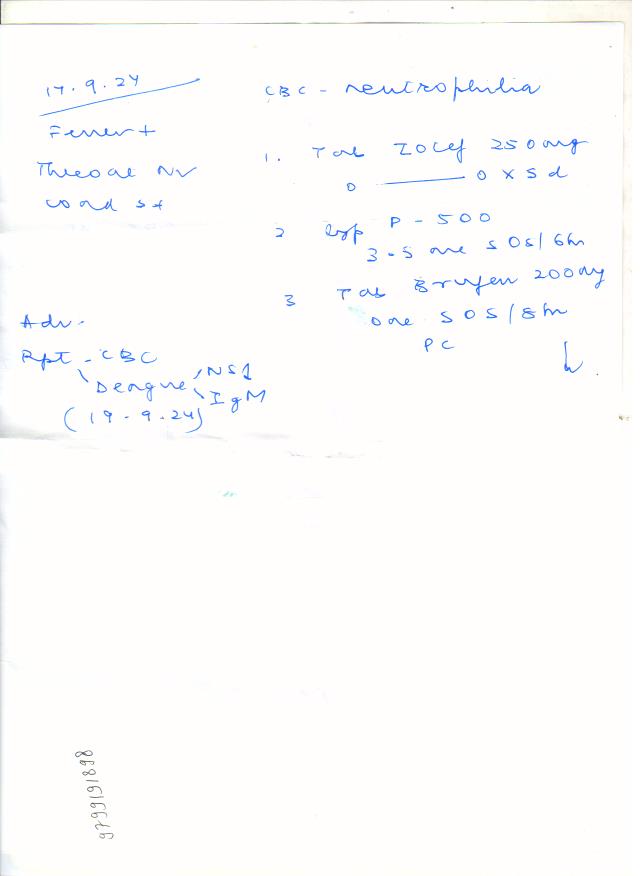 17.9.24
Fever +
Throat NV
cond st
Adv.
Rpt - CBC
Dengue NS1
IgM
(19-9-24)
CBC - neutrophilia
1. Tab Zocef 250mg
0 —— 0 x 5d
2 Syp P-500
3-5 ml SOS/6hr
3 Tab Brufen 200mg
one SOS/8hr
PC
9799191898